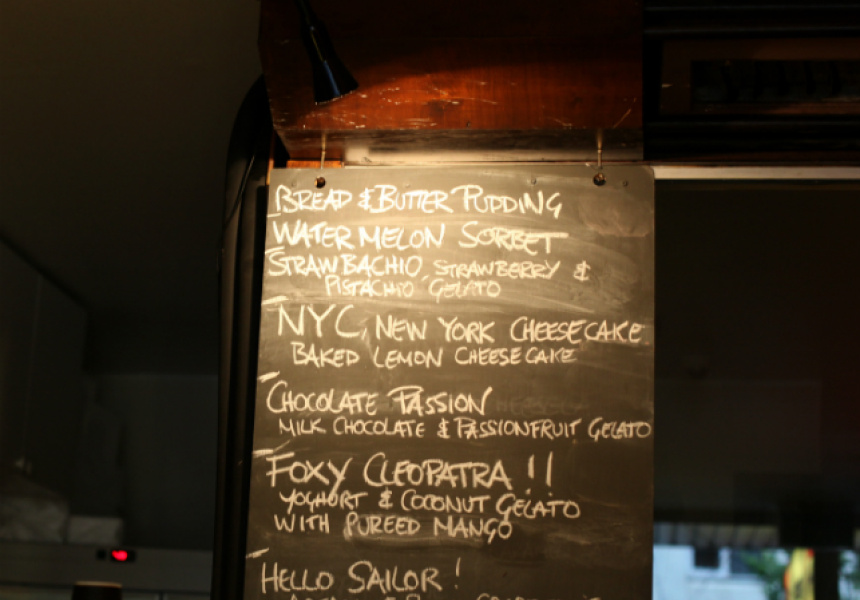 BREAD & BUTTER PUDDING
WATERMELON SORBET
STRAWBACHIO, STRAWBERRY &
PISTACHIO GELATO
NYC, NEW YORK CHEESECAKE
BAKED LEMON CHEESECAKE
CHOCOLATE PASSION
MILK CHOCOLATE & PASSIONFRUIT GELATO
FOXY CLEOPATRA !!
YOGHURT & COCONUT GELATO
WITH PUREED MANGO
HELLO SAILOR !